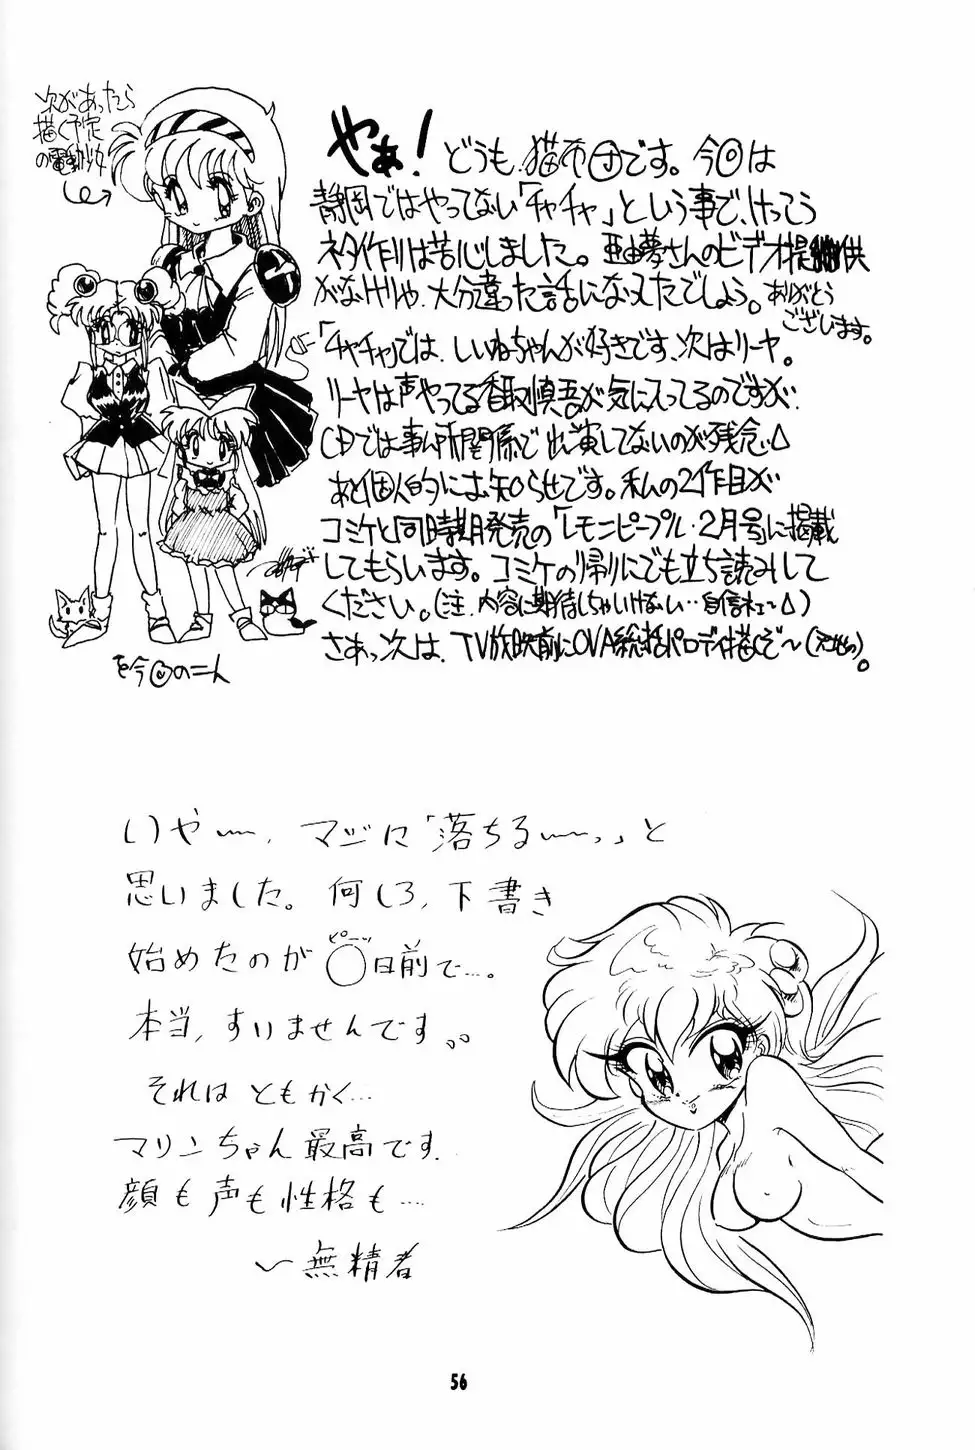 次があったら
描く予定
の電動少女
やぁ！どうも、猫布団です。今回は
静岡ではやってない「チャチャ」という事で、けっこう
ネタ作りは苦心しました。亜由夢さんのビデオ提供
がなけりゃ、大分違った話になってたでしょう。ありがとう
ございます。
「チャチャ」では、しいねちゃんが好きです、次はリーヤ。
リーヤは声やってる香取慎吾が気に入ってるのですが、
CDでは事ム所関係で出演してないのが残念
あと個人的にお知らせです。私の2作目が
コミケと同時期発売の「レモンピープル・2月号」に掲載
してもらいます。コミケの帰りにでも立ち読みして
ください。(注、内容に期待しちゃいけない…自信ネェーン)
さぁっ次は、TV放映前にOVA総括パロディ描くぞ〜
を今回のニん
いやー、マジに「落ちるーっ」と
思いました。何しろ、下書き
始めたのが〇日前で…。
ピーッ
本当、すいませんです。。
それはともかく…
マリンちゃん最高です.
顔も声も性格も…
〜無精者
56